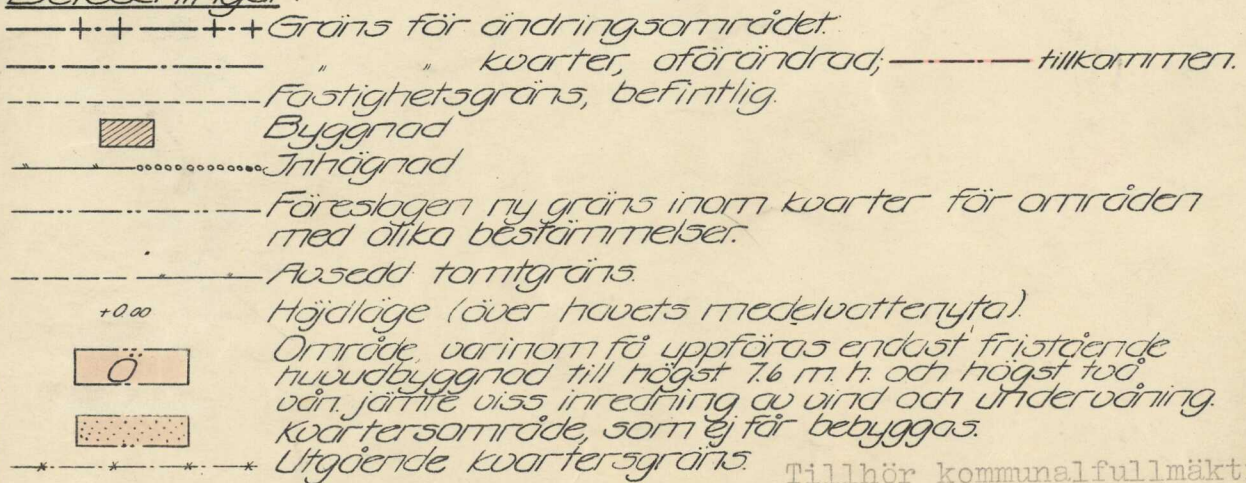 Beteckningar:
Gräns för ändringsområdet.
" " kvarter, oförändrad; tillkommen.
Fastighetsgräns, befintlig.
Byggnad
Inhägnad
Föreslagen ny gräns inom kvarter för områden
med olika bestämmelser.
Avsedd tomtgräns.
+0.00 Höjdläge (över havets medelvattenyta).
Ö Område, varinom få uppföras endast fristående
huvudbyggnad till högst 7.6 m. h. och högst två
vån. jämte viss inredning av vind och undervåning.
Kvartersområde, som ej får bebyggas.
Utgående kvartersgräns.
Tillhör kommunalfullmäkt